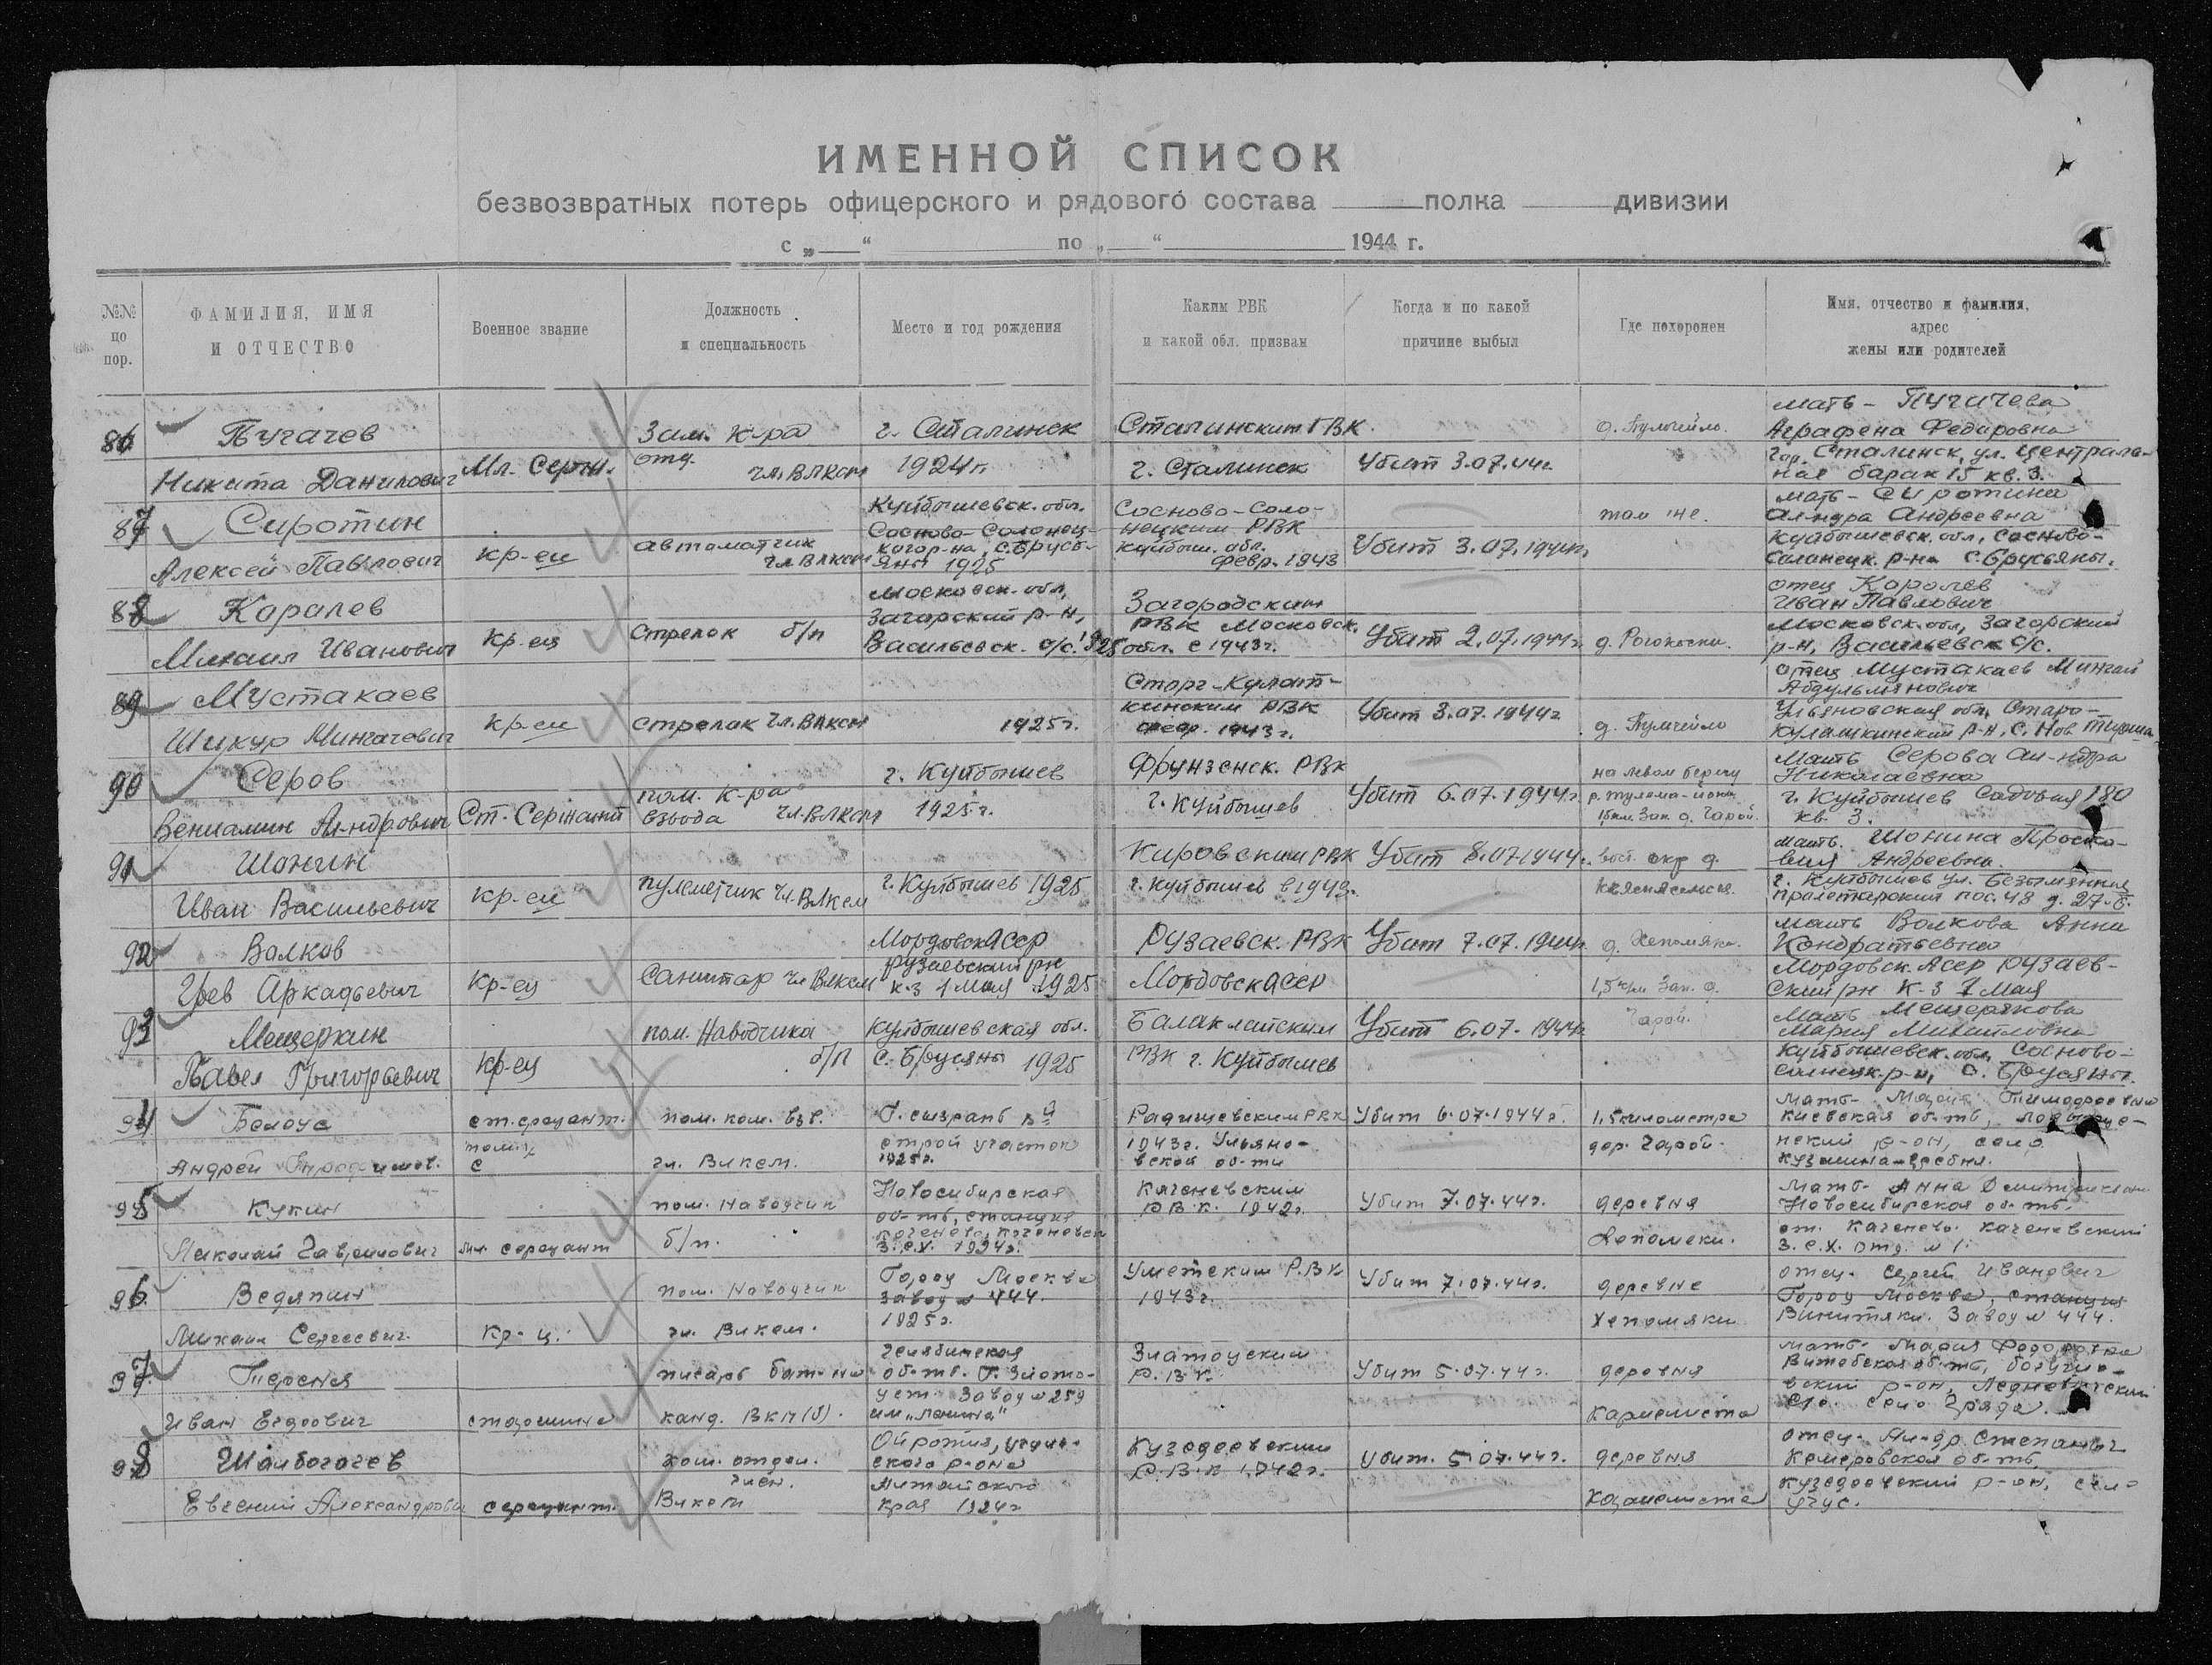 ИМЕННОЙ СПИСОК
безвозвратных потерь офицерского и рядового состава полка дивизии
с „ “ по „ “ 1944 г.
№№ по пор.
ФАМИЛИЯ, ИМЯ И ОТЧЕСТВО
Военное звание
Должность и специальность
Место и год рождения
Каким РВК и какой обл. призван
Когда и по какой причине выбыл
Где похоронен
Имя, отчество и фамилия, адрес жены или родителей
86
Пугачев
Никита Данилович
Мл. Серж.
Зам. к-ра
отд.
чл. ВЛКСМ
г. Сталинск
1924 г.
Сталинским ГВК
г. Сталинск
Убит 3.07.44г.
мать - Пугачева
Аграфена Федоровна
гор. Сталинск, ул. Централь-
ная барак 15 кв. 3.
87
Сиротин
Алексей Павлович
Кр-ец
автоматчик
чл. ВЛКСМ
Куйбышевск. обл.
Сосново-Солонец-
кого р-на, с. Брусь-
яны 1925
Сосново-Соло-
нецким РВК
Куйбыш. обл.
февр. 1943
Убит 3.07.1944г.
там же.
мать - Сиротина
Ал-ндра Андреевна
Куйбышевск. обл, Сосново-
Солонецк. р-на с. Брусьяны.
88
Каралев
Михаил Иванович
Кр-ец
Стрелок б/п
Московск. обл,
Загорский р-н,
Васильевск. с/с. 1925
Загородским
РВК Московск.
обл. с 1943г.
Убит 2.07.1944г.
отец Королев
Иван Павлович
Московск. обл, Загорский
р-н, Васильевск с/с.
89
Мустакаев
Шикур Мингачевич
Кр-ец
Стрелок чл. ВЛКСМ
1925г.
кинским РВК
февр. 1943г.
Убит 3.07.1944г
отец Мустакаев
Ульяновская обл, Старо-
Кулаткинский р-н, с. Нов
90
Серов
Вениамин Ал-ндрович
Ст. Сержант
пом. к-ра
взвода чл. ВЛКСМ
г. Куйбышев
1925г.
Фрунзенск. РВК
г. Куйбышев
Убит 6.07.1944г.
на левом берегу
Мать Серова Ал-ндра
Николаевна
г. Куйбышев Садовая 180
кв. 3.
91
Шонин
Иван Васильевич
Кр-ец
пулеметчик чл. ВЛКСМ
г. Куйбышев 1925
Кировским РВК
г. Куйбышев в 1943г.
Убит 8.07.1944г.
мать. Шонина Праско-
вия Андреевна.
г. Куйбышев ул. Безымянная
Пролетарский пос. 48 д. 27-Б.
92
Валков
Кр-ец
Санитар чл ВЛКСМ
Мордовск АССР
Рузаевский рн
к-з 1 Мая 1925
Рузаевск. РВК
Мордовск АССР
Убит 7.07.1944г.
1,5 км Зап. д.
Чарой.
мать Волкова Анна
Кондратьевна
Мордовск. АССР Рузаев-
ский рн К-з 1 Мая
93
Мещеркин
Павел Григорьевич
Кр-ец
пом. Наводчика
б/п
Куйбышевская обл.
с. Брусяны 1925
РВК г. Куйбышев
Убит 6.07.1944г
Мать Мещерякова
Мария Михайловна
Куйбышевск. обл, Сосново-
94
Белоус
Андрей
ст. сержант.
пом. ком. взв.
чл. Влксм.
Г. Сызрань
1925г.
Радищевским РВК
1943г. Ульяно-
вской об-ти
Убит 6.07.1944г.
1,5 километра
дер. Чарой.
95
Кукин
Николай Гаврилович
мл. сержант
пом. Наводчик
б/п.
Новосибирская
об-ть, станция
1924г.
Коченевским
Р.В.К. 1942г.
Убит 7.07.44г.
деревня
Мать- Анна
Новосибирская об-ть.
ст. Коченево. Коченевский
96.
Ведяпин
Михаил Сергеевич.
Кр-ц.
пом. Наводчик
чл. Влксм.
Город Москва
Завод № 444.
1925г.
Уметским Р.В.К
1943г.
Убит 7.07.44г.
деревне
Хепомяки
отец. Сергей Иванович
Город Москва, станция
Завод № 444.
97.
Тереня
Иван Егорович
старшина
писарь бат-на
канд. ВКП(б).
Челябинская
об-ть. Г. Злато-
уст. Завод № 259
им „Ленина“
Златоуским
Р.В.К.
Убит 5.07.44г.
деревня
мать- Мария
Витебская об-ть,
98
Шалбогачев
Евгений Александрови
сержант.
ком. отдел.
член.
Влксм
Ойротия,
ского р-она
Алтайского
края 1924г
Кузедеевским
Р.В.К 1942г.
Убит. 5.07.44г.
деревня
отец- Ал-др Степанович
Кемеровская об-ть
Кузедеевский р-он, село